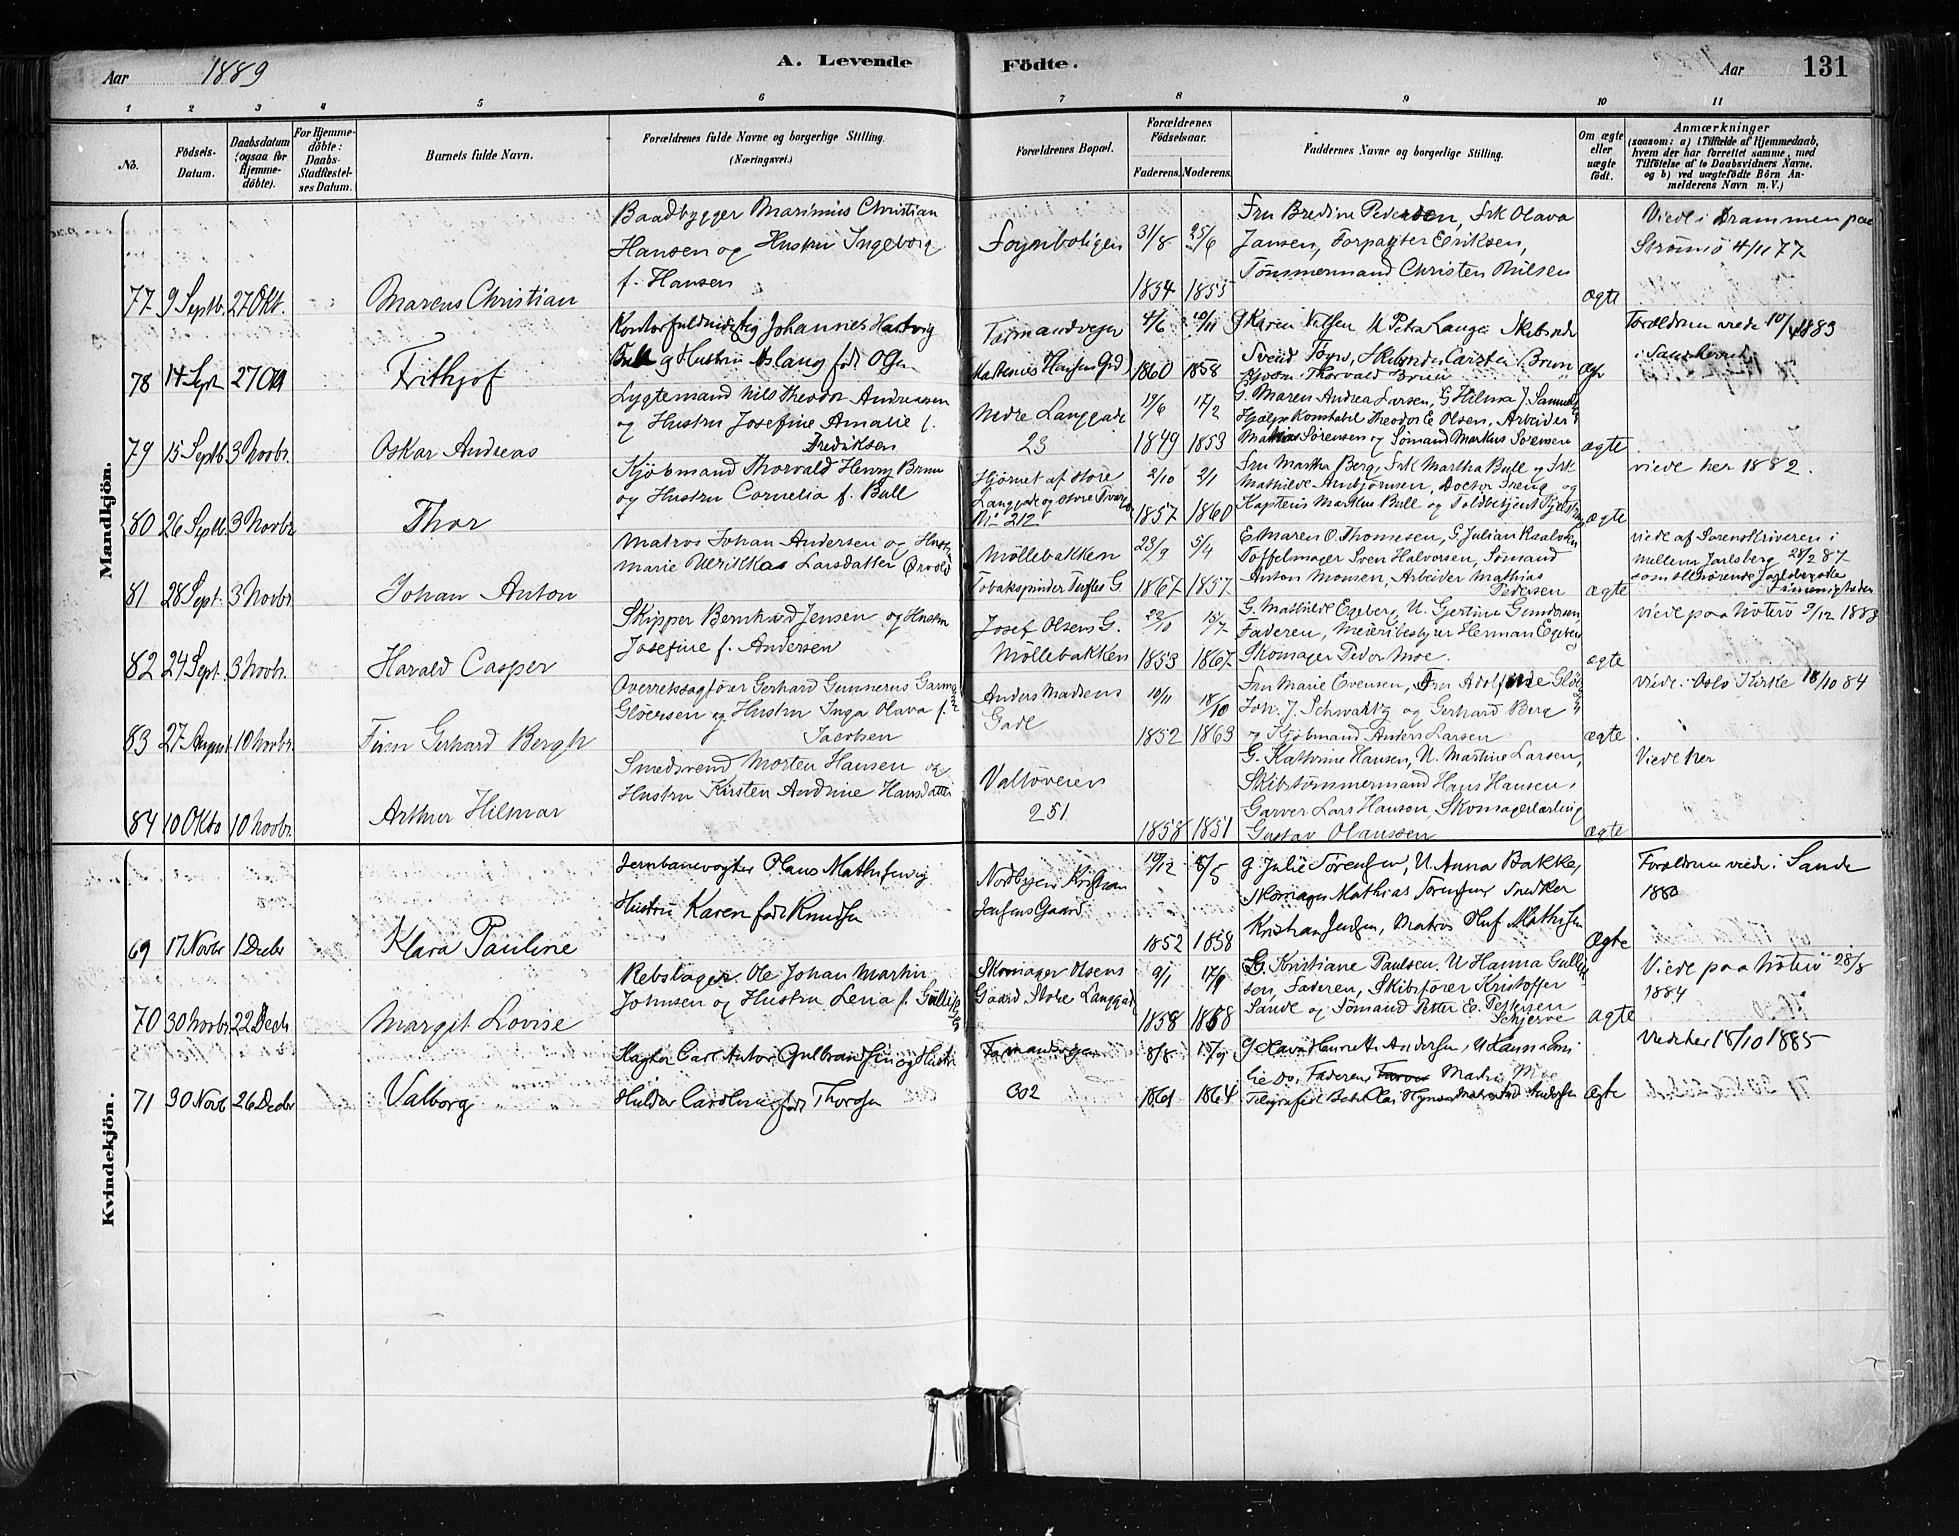 Aar 1889
A. Levende Fødte.
Aar 131
1 2 3 4 5 6 7 8 9 10 11
No.
Fødsels-Datum.
Daabsdatum (ogsaa for Hjemmedöbte).
For Hjemmedöbte: Daabs-Stadfæstelses Datum.
Barnets fulde Navn.
Forældrenes fulde Navne og borgerlige Stilling.
(Næringsvei.)
Forældrenes Bopæl.
Forældrenes Födselsaar.
Faderens. Moderens.
Faddernes Navne og borgerlige Stilling.
Om ægte eller uægte födt.
Anmærkninger
(saasom: a) i Tilfælde af Hjemmedaab, hvem der har forrettet samme, med Tilföielse af to Daabsvidners Navne, og b) ved uægtefödte Börn Anmelderens Navn m. V.)
Mandkjön.
77 9 Septb. 27 Okt. Marcus Christian
Baadbygger Marinius Christian
Hansen og Hustru Ingeborg
f. Hansen
Foynboligen
31/8 1854 25/6 1855
Fru Bredine Pedersen, Frk Olava
Jansen, Forpagter Eriksen,
Tømmermand Christen Nilsen
ægte
Viede i Drammen paa
Strømsø 4/11 77.
78 14 Sept 27 Okt Frithjof
Kontorfuldmægtig Johannes Hartvig
Bull og Hustru Aslaug født
Farmandsveien
4/6 1860 10/11 1858
g Karen Nilsen U Petra Lange
Svend Foyn, Carsten Bruun
Thorvald Bruun
Forældrene viede 10/ 1883
79 15 Septb 3 Novbr. Oskar Andreas
Lygtemand Nils Theodor Andreassen
og Hustru Josefine Amalie f.
Fredriksen
Nedre Langgade
23
19/6 1849 17/2 1853
G. Maren Andrea Larsen, G Hilma J
Hjælpekonstabel Theodor E Olsen, Arbeider
Mathias Sørensen og Sømand Markus Svensen
ægte
80 26 Septb. 3 Novbr Thor
Kjøbmand Thorvald Henry Bruun
og Hustru Cornelia f. Bull
Hjørnet af Store
Langgade og Store
No 212
2/10 1857 2/1 1860
Fru Martha Berg, Frk Martha Bull og Frk
Mathilde Anbjørnsen, Doctor og
Kaptein Markus Bull og Toldbetjent
ægte
viede her 1882.
81 28 Sept. 3 Novbr Johan Anton
Matros Johan Andersen og Hustru
Marie Ulrikka Larsdatter
Møllebakken
Tobakspinder Tuftes G.
23/9 1867 5/4 1857
E. Maren O. Thomesen, G. Julian
Toffelmager Sven Halvorsen, Sømand
Anton Monsen, Arbeider Mathias
Pedersen
ægte
viede af Sorenskriveren i
mellem Jarlsberg 28/2 87
82 24 Sept. 3 Novbr. Harald Casper
Skipper Bernhard Jensen og Hustru
Josefine f. Andersen
Josef Olsens G.
Møllebakken
22/10 1853 15/7 1867
G. Mathilde Egeberg, U. Gjertine
Faderen, Meieribestyrer Herman Egeberg
Skomager Peder Moe.
ægte
viede paa Nøterø 9/12 1883
83 27 August 10 Novbr. Finn Gerhard Bergh
Overretssagfører Gerhard Gunnerus
Gløersen og Hustru Inga Olava f.
Jacobsen
Anders Madsens
Gade
10/11 1852 18/10 1863
Fru Marie Evensen,
Joh. J. Schwartz og Gerhard Berg
og Kjøbmand Anders Larsen
ægte
viede i Oslo Kirke 18/10 84
84 10 Oktb 10 Novbr. Arthur Hilmar
Smedsvend Morten Hansen og
Hustru Kirsten Andrine Hansdatter
251
1858 1851
G. Kathrine Hansen, U. Martine Larsen,
Skibstømmermand Hans Hansen,
Garver Lars Hansen, Skomagerlærling
Gustav Olaussen
ægte
Viede her
Kvindekjön.
69 17 Novbr 1 Decbr Klara Pauline
Jernbanevogter Olaus Mathisen og
Hustru Karen født Knudsen
Nordbyen Kristian
Jensens Gaard
10/12 1852 8/5 1858
g Julie Sørensen, U. Anna Bakke,
Skomager Mathias Sørensen, Snedker
Kristian Jensen, Matros Oluf Mathisen
Ægte
Forældrene viede i Sande
1880
70 30 Novbr 22 Decb Margit Lovise
Rebslager Ole Johan Martin
Johnsen og Hustru Lena f.
Skomager Olsens
Gaard Store Langgade
9/1 1858 17/9 1858
G. Kristiane Paulsen. U Hanna
sen, Faderen, Skibsfører Kristoffer
Sande og Sømand Petter E. Pettersen
Schjerve
ægte
Viede paa Nøterø 28/8
1884
71 30 Novb 26 Decbr Valborg
Carl Anton Gulbrandsen og Hustru
Hulda Caroline født Thorsen
Farmandsveien
302
8/8 1861 15/9 1864
g Henriette Andersen,
Faderen,
ægte
Viede her 18/10 1885